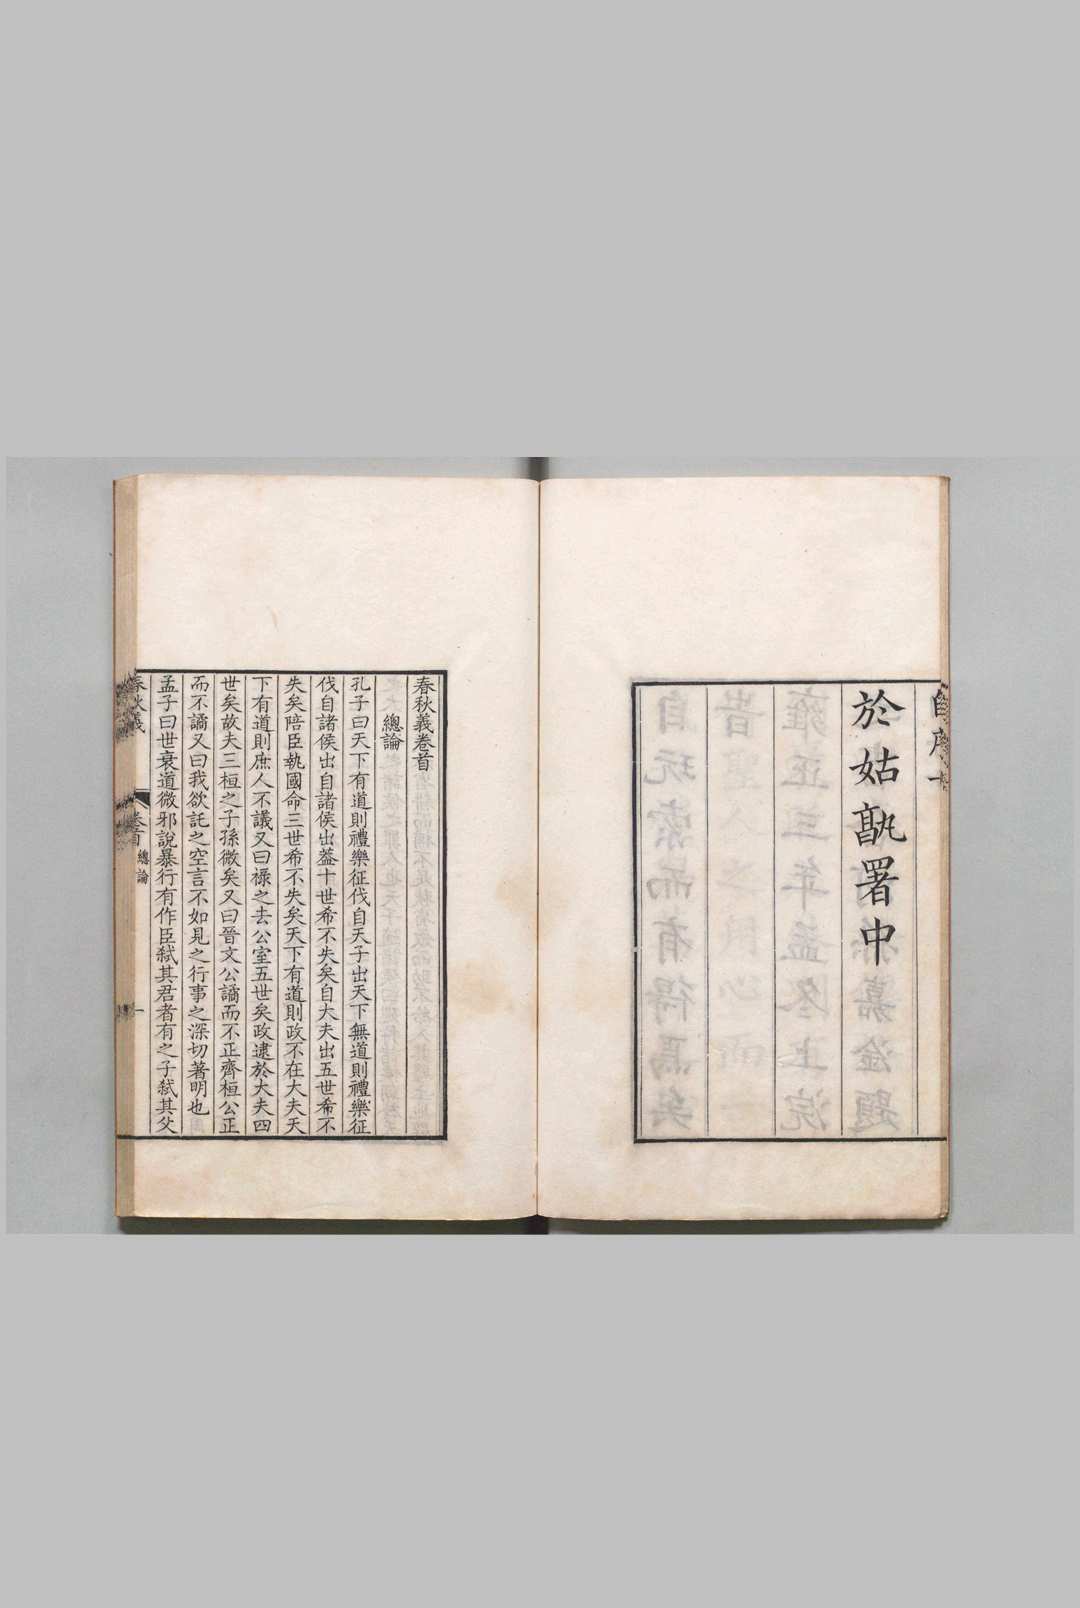 於姑孰署中
春秋義卷首
總論
孔子曰天下有道則禮樂征伐自天子出天下無道則禮樂征
伐自諸侯出自諸侯出蓋十世希不失矣自大夫出五世希不
失矣陪臣執國命三世希不失矣天下有道則政不在大夫天
下有道則庶人不議又曰祿之去公室五世矣政逮於大夫四
世矣故夫三桓之子孫微矣又曰晉文公譎而不正齊桓公正
而不譎又曰我欲託之空言不如見之行事之深切著明也
孟子曰世衰道微邪說暴行有作臣弒其君者有之子弒其父
春秋義
卷首
總論
一